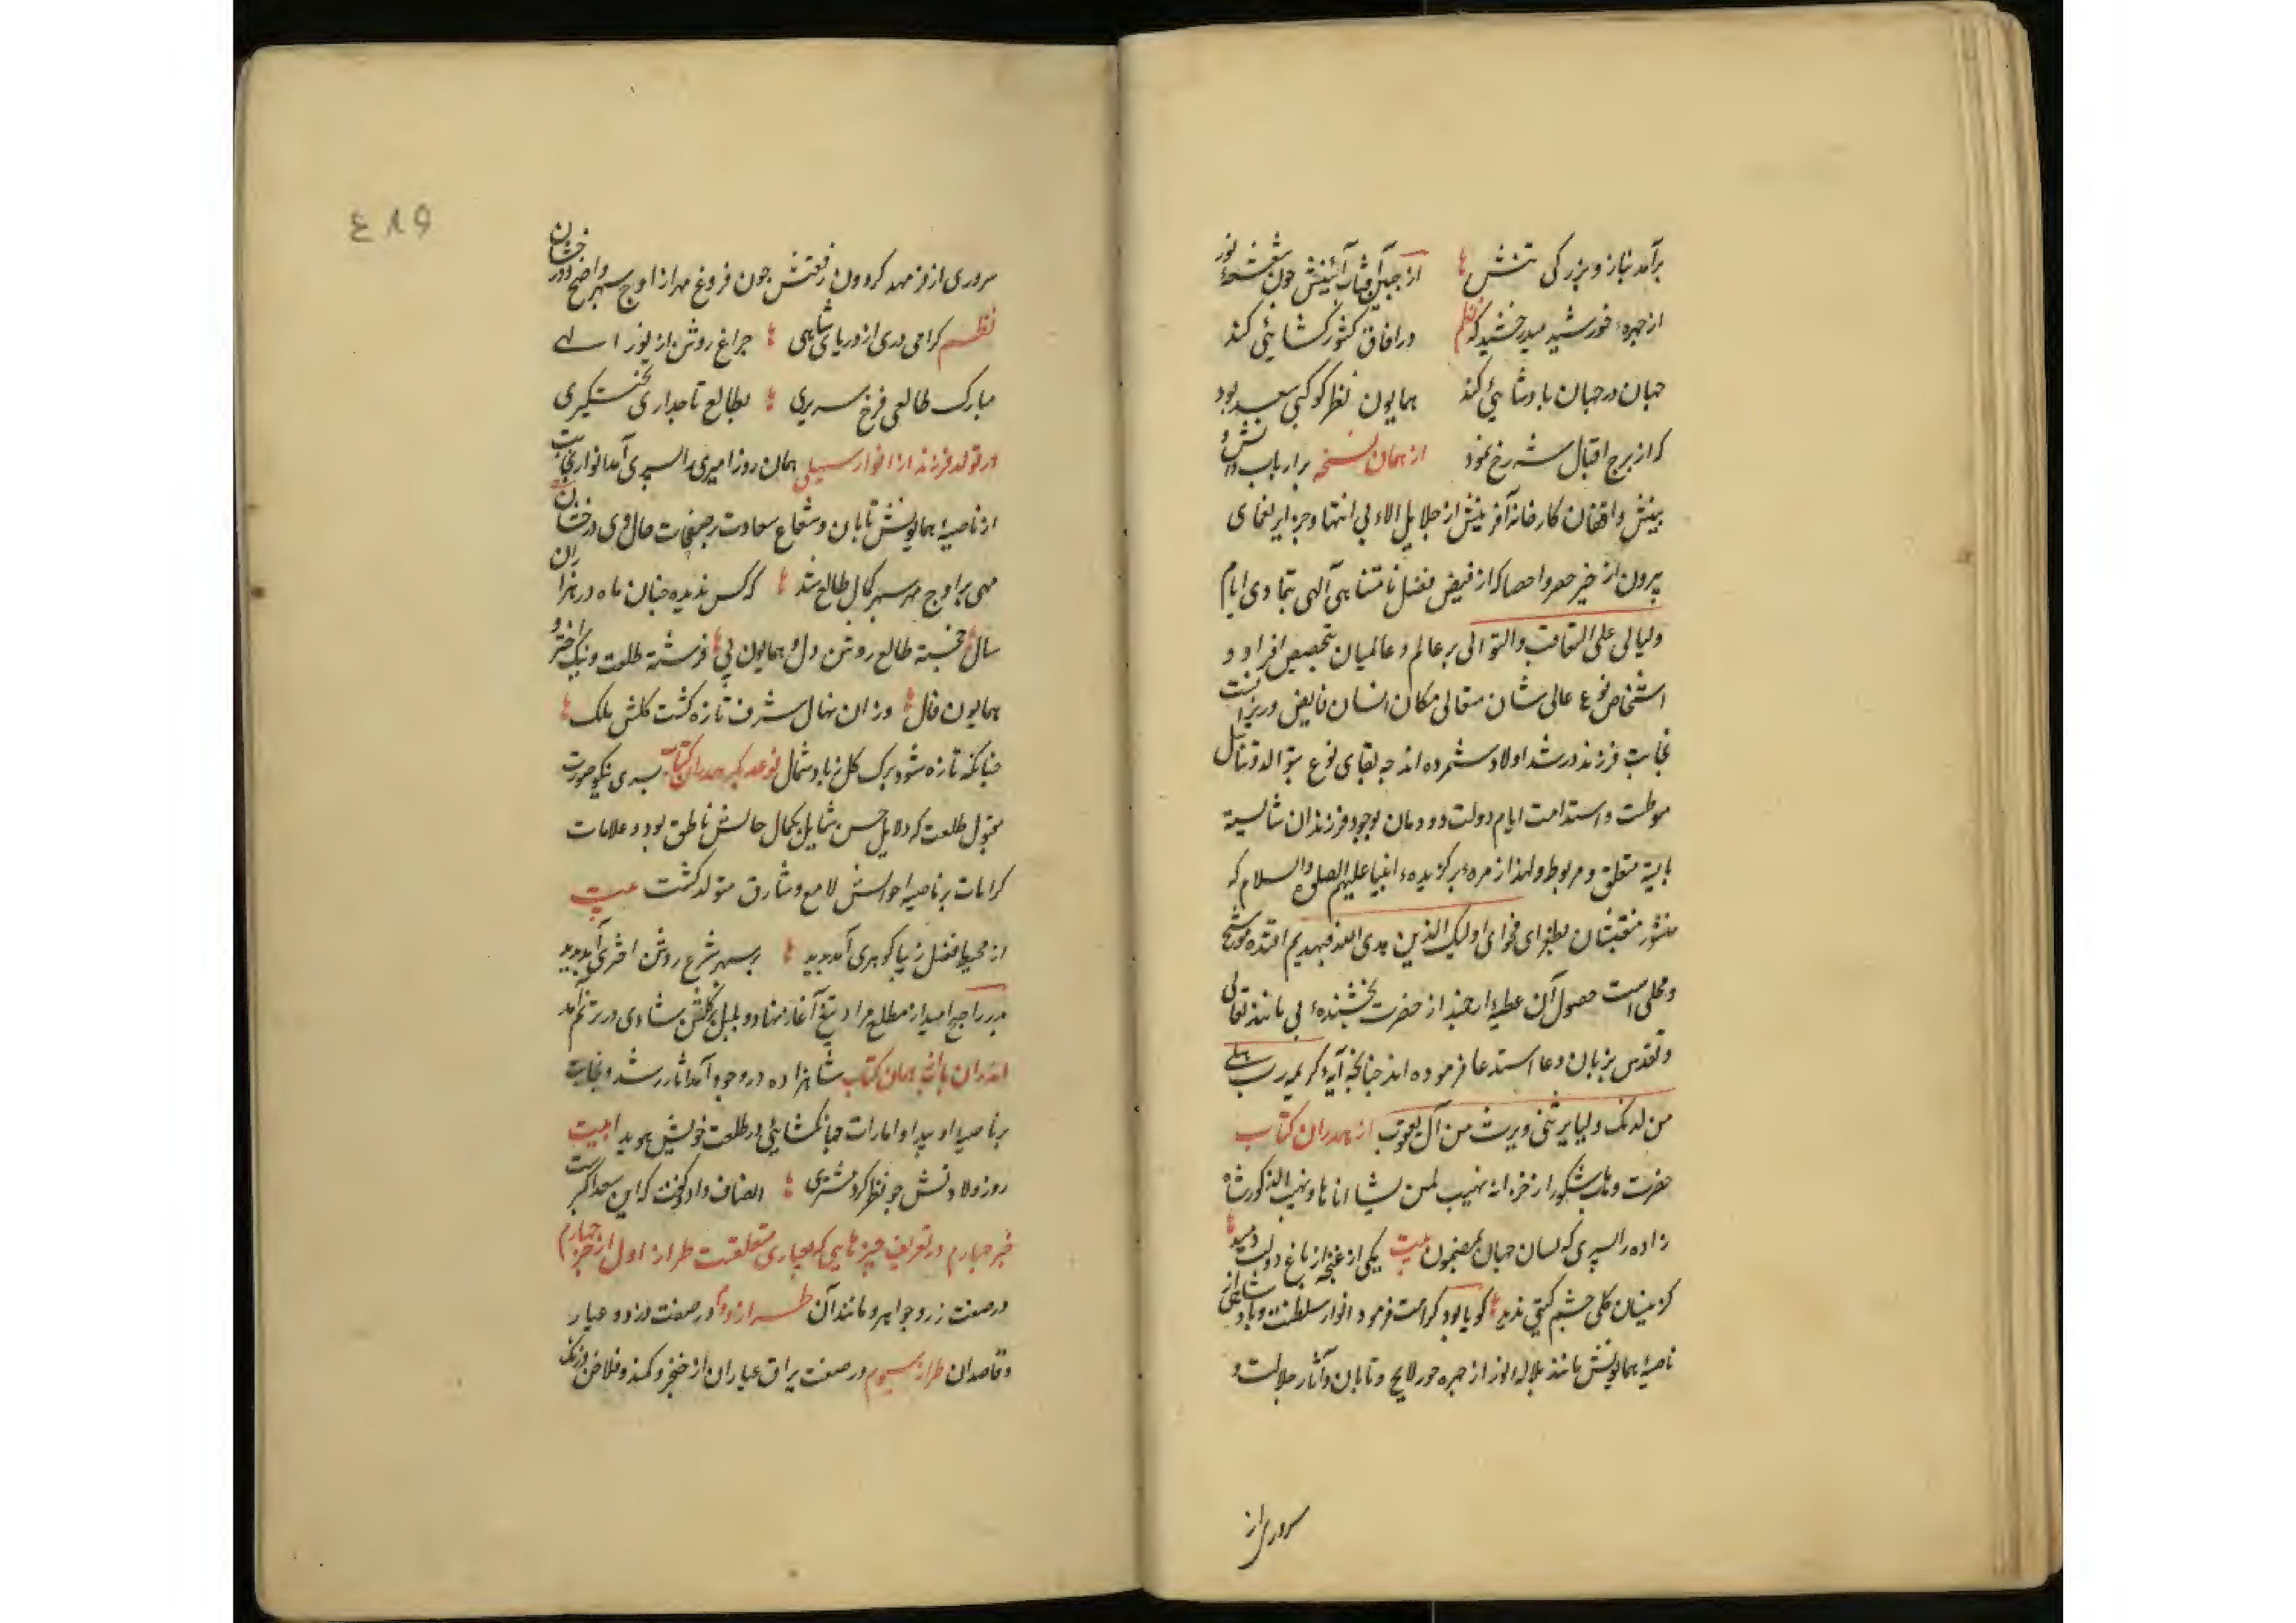 برآمد بناز و بزرگی تنش از جبین آفتاب آئینش چون شعشعهٔ نور
از چهرهٔ خورشید میدرخشید که نظم در آفاق کشور کشائی کند
جهان در جهان بادشائی کند همایون نظر کوکبی سعد بود
که از برج اقبال شه رخ نمود از همان نسخه بر ارباب دانش و
بینش و واقفان کارخانهٔ آفرینش از جلایل الاء بی انتها و جزایر نعمای
بیرون از حیز حصر و احصا که از فیض فضل نامتناهی آلهی بتمادی ایام
ولیالی علی التعاقب والتوالی بر عالم و عالمیان بتخصیص افراد و
اشخاص نوع عالی شان متعالی مکان انسان فایض و ریزانست
نجابت فرزند و رشد اولاد شمرده اند چه بقای نوع بتوالد و تناسل
موطست و استدامت ایام دولت دودمان بوجود فرزندان شایسته
بایسته متعلق و مربوط ولهذا زمرهٔ برگزیدهٔ انبیا علیهم الصلوة والسلام که
منشور منقبتشان بطغرای فحوای اولیک الذین هدی الله فبهدیهم اقتده موشح
و محلی است حصول آن عطیهٔ ارجمند از حضرت بخشندهٔ بی مانند تعالی
و تقدس بزبان دعا استدعا فرموده اند چنانچه آیهٔ کریمه رب هب لی
من لدنک ولیا یرثنی ویرث من آل یعقوب از همدران کتاب
حضرت وهاب شکور از خزانه یهب لمن یشا اناثا و یهب الذکور شاه
زاده را پسری که لسان جهان بمضمون بیت یکی از غنچه از باغ دولت دمید
کزینسان گلی چشم گیتی ندید گویا بود کرامت فرمود انوار سلطنت و بادشاهی از
ناصیهٔ همایونش مانند بلاله نور از چهره حور لایح و تابان و آثار جلالت و
سروری از
٤٨٩
سروری از فر مهد گردون رفعتش چون فروغ مهر از اوج سپهر واضح و درخشان
نظم گرامی دری از دریای شاهی چراغ روشن از نور الهی
مبارک طالعی فرخ سریری بطالع تاجداری تختگیری
در تولد فرزند از انوار سهیلی همان روز امیری را پسری آمد انوار نجابت
از ناصیهٔ همایونش تابان و شعاع سعادت بر صفحات حال وی درخشان
مهی بر اوج سپهر کمال طالع شد که کس ندیده چنان ماه در هزاران
سال خجسته طالع روشن دل و همایون پی فرشته طلعت و نیک اختر و
همایون فال وزان نهال شرف تازه گشت گلشن ملک
چنانکه تازه شود برگ گل ز باد شمال نوعدیگر همدران کتاب پسری نیکو صورت
مقبول طلعت که دلایل حسن شمایل بکمال حالش ناطق بود و علامات
کرامات بر ناصیهٔ احوالش لامع و شارق متولد گشت بیت
از محیط فضل زیبا گوهری آمد پدید بر سپهر شرع روشن اختری آمد پدید
پدر را صبح امید از مطلع مراد تیغ آغاز نهاد و بلبل بر گلشن شادی در ترنم آمد
اندران باب همان کتاب شاهزاده در وجود آمد آثار رشد و نجابت
بر ناصیه او پیدا و امارات جهانگشایی در طلعت خوبش هویدا بیت
روز ولادتش چو نظر کرد مشتری انصاف داد و گفت که این سعد اکبر است
خبر چهارم در تعریف چیزهایی که بعیاری متعلقست طراز اول از خبر چهارم
در صفت زر و جواهر و مانند آن طراز دوم در صفت دزد و عیار
و قاصدان طراز سیوم در صفت یراق عیاران از خنجر و کمند و فلاخن و زنگ